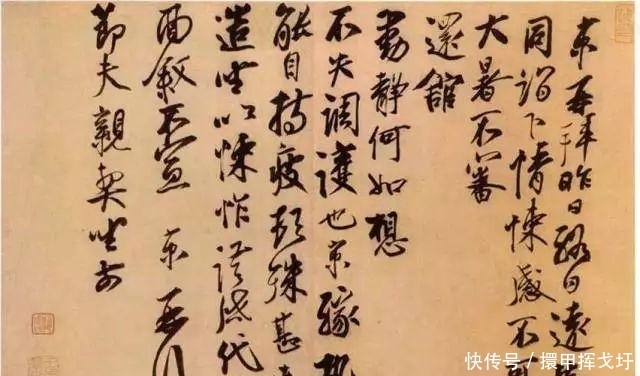 京再拜昨日終日遠
同詣下情悚感不
大暑不審
還舘
動靜何如想
不失調護也京緣
能自持疲頓殊甚
造坐以悚怍謹啟代
面敘不宣京再
節夫親契坐右
快传号／擐甲挥戈圩